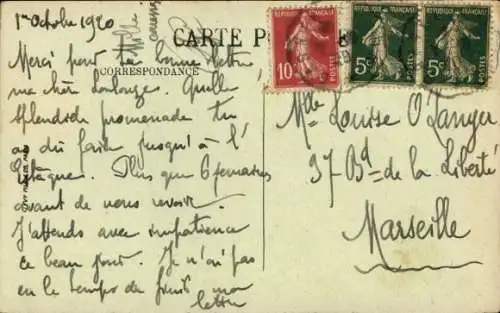 1er Octobre 1920
CARTE P
CORRESPONDANCE
Merci pour ta bonne lettre
ma chère Quelle
splendide promenade tu
as dû faire jusqu'à l'
Estaque. Plus que 6 semaines
avant de nous revoir.
J'attends avec impatience
ce beau jour. Je n'ai pas
eu le temps de finir ma
lettre
RÉPUBLIQUE FRANÇAISE
10c
POSTES
5c
POSTES
5c
POSTES
Mlle Louise
37 Bd de la Liberté
Marseille